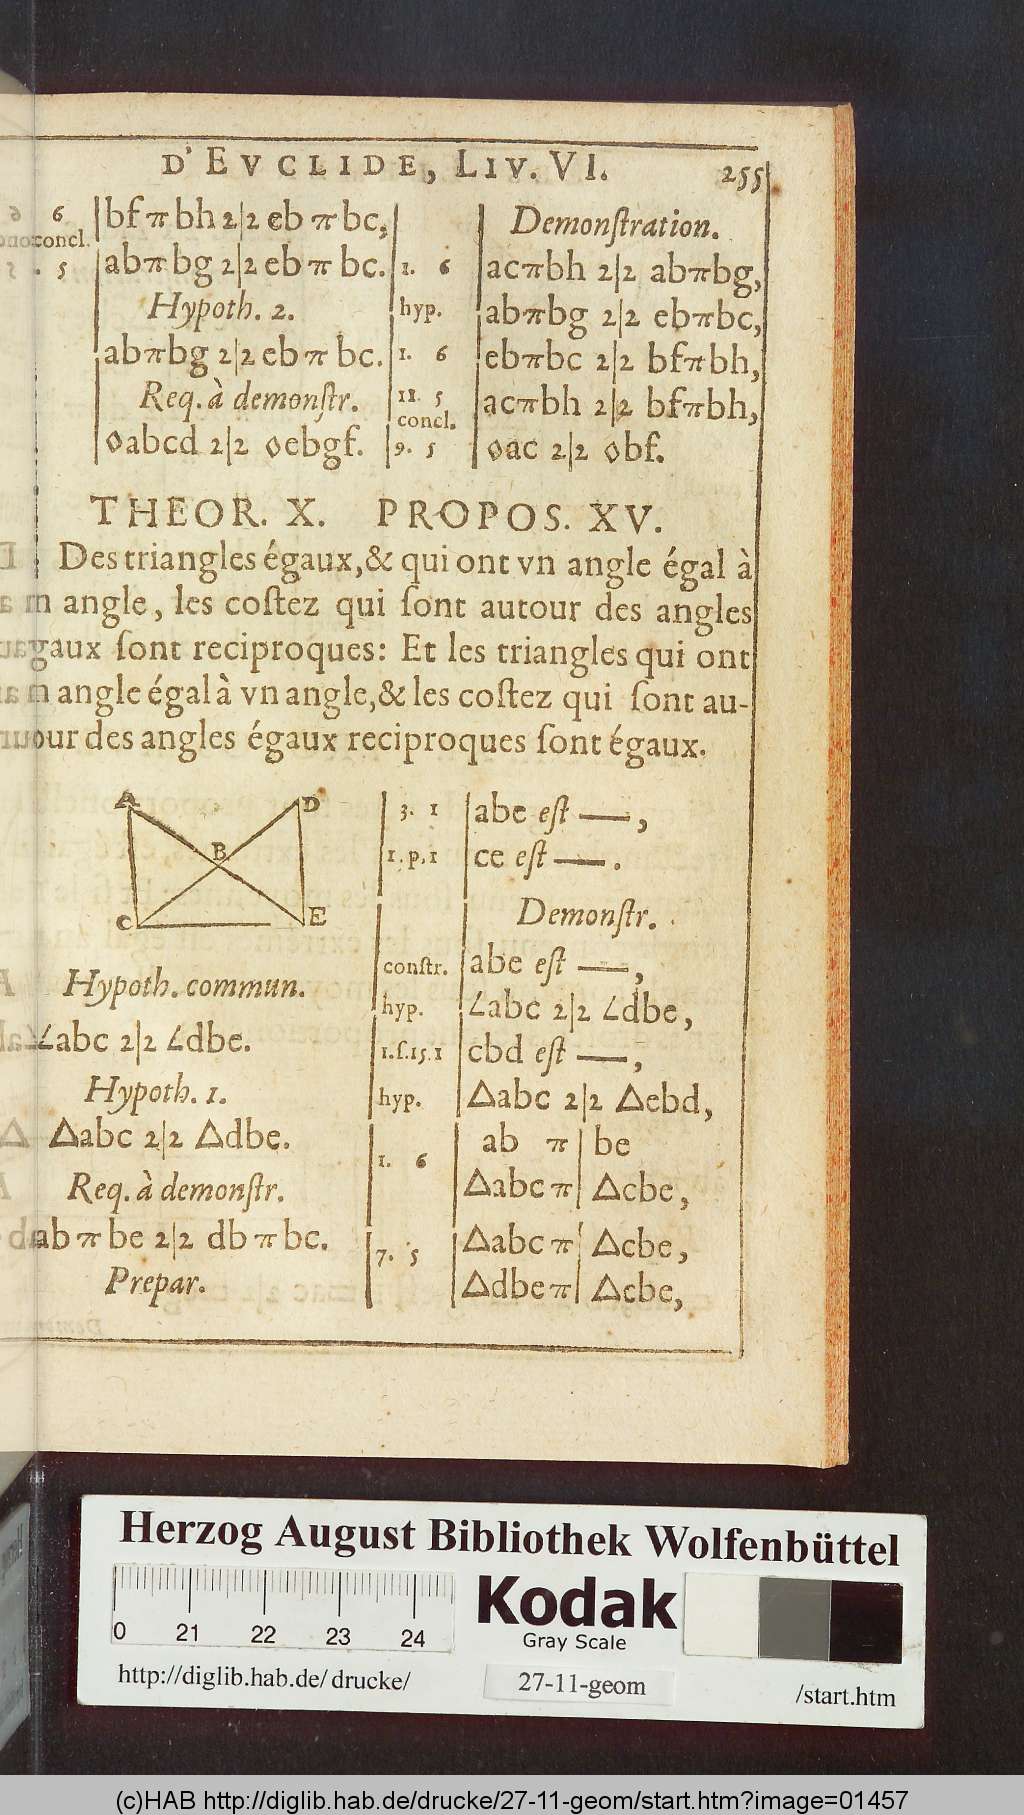 D' EVCLIDE, LIV. VI. 255
6 bf π bh 2|2 eb π bc,
concl.
5 ab π bg 2|2 eb π bc.
Hypoth. 2.
ab π bg 2|2 eb π bc.
Req. à demonſtr.
◊abcd 2|2 ◊ebgf.
Demonſtration.
1. 6 ac π bh 2|2 ab π bg,
hyp. ab π bg 2|2 eb π bc,
1. 6 eb π bc 2|2 bf π bh,
11. 5 ac π bh 2|2 bf π bh,
concl.
9. 5 ◊ac 2|2 ◊bf.
THEOR. X. PROPOS. XV.
Des triangles égaux, & qui ont vn angle égal à
angle, les coſtez qui ſont autour des angles
gaux ſont reciproques: Et les triangles qui ont
angle égal à vn angle, & les coſtez qui ſont au-
our des angles égaux reciproques ſont égaux.
A D
B
C E
Hypoth. commun.
∠abc 2|2 ∠dbe.
Hypoth. 1.
△abc 2|2 △dbe.
Req. à demonſtr.
ab π be 2|2 db π bc.
Prepar.
3. 1 abe eſt —,
1. p. 1 ce eſt —.
Demonſtr.
conſtr. abe eſt —,
hyp. ∠abc 2|2 ∠dbe,
1.ſ.15.1 cbd eſt —,
hyp. △abc 2|2 △ebd,
1. 6 ab π | be
△abc π | △cbe,
7. 5 △abc π | △cbe,
△dbe π | △cbe,
Herzog August Bibliothek Wolfenbüttel
0 21 22 23 24
Kodak
Gray Scale
http://diglib.hab.de/drucke/ 27-11-geom /start.htm
(c)HAB http://diglib.hab.de/drucke/27-11-geom/start.htm?image=01457